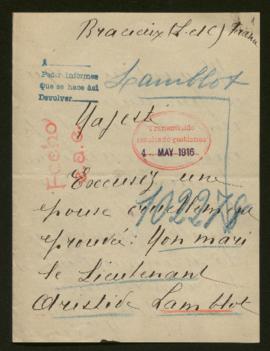 Bracieux (L-et-C)
A
Pedir informes
Que se hace así
Devolver
Lamblot
Majesté
Transmitido
4 MAY 1916
Fecho
102278
Excusez une
épouse cruellement
éprouvée: Mon mari
le Lieutenant
Aristide Lamblot